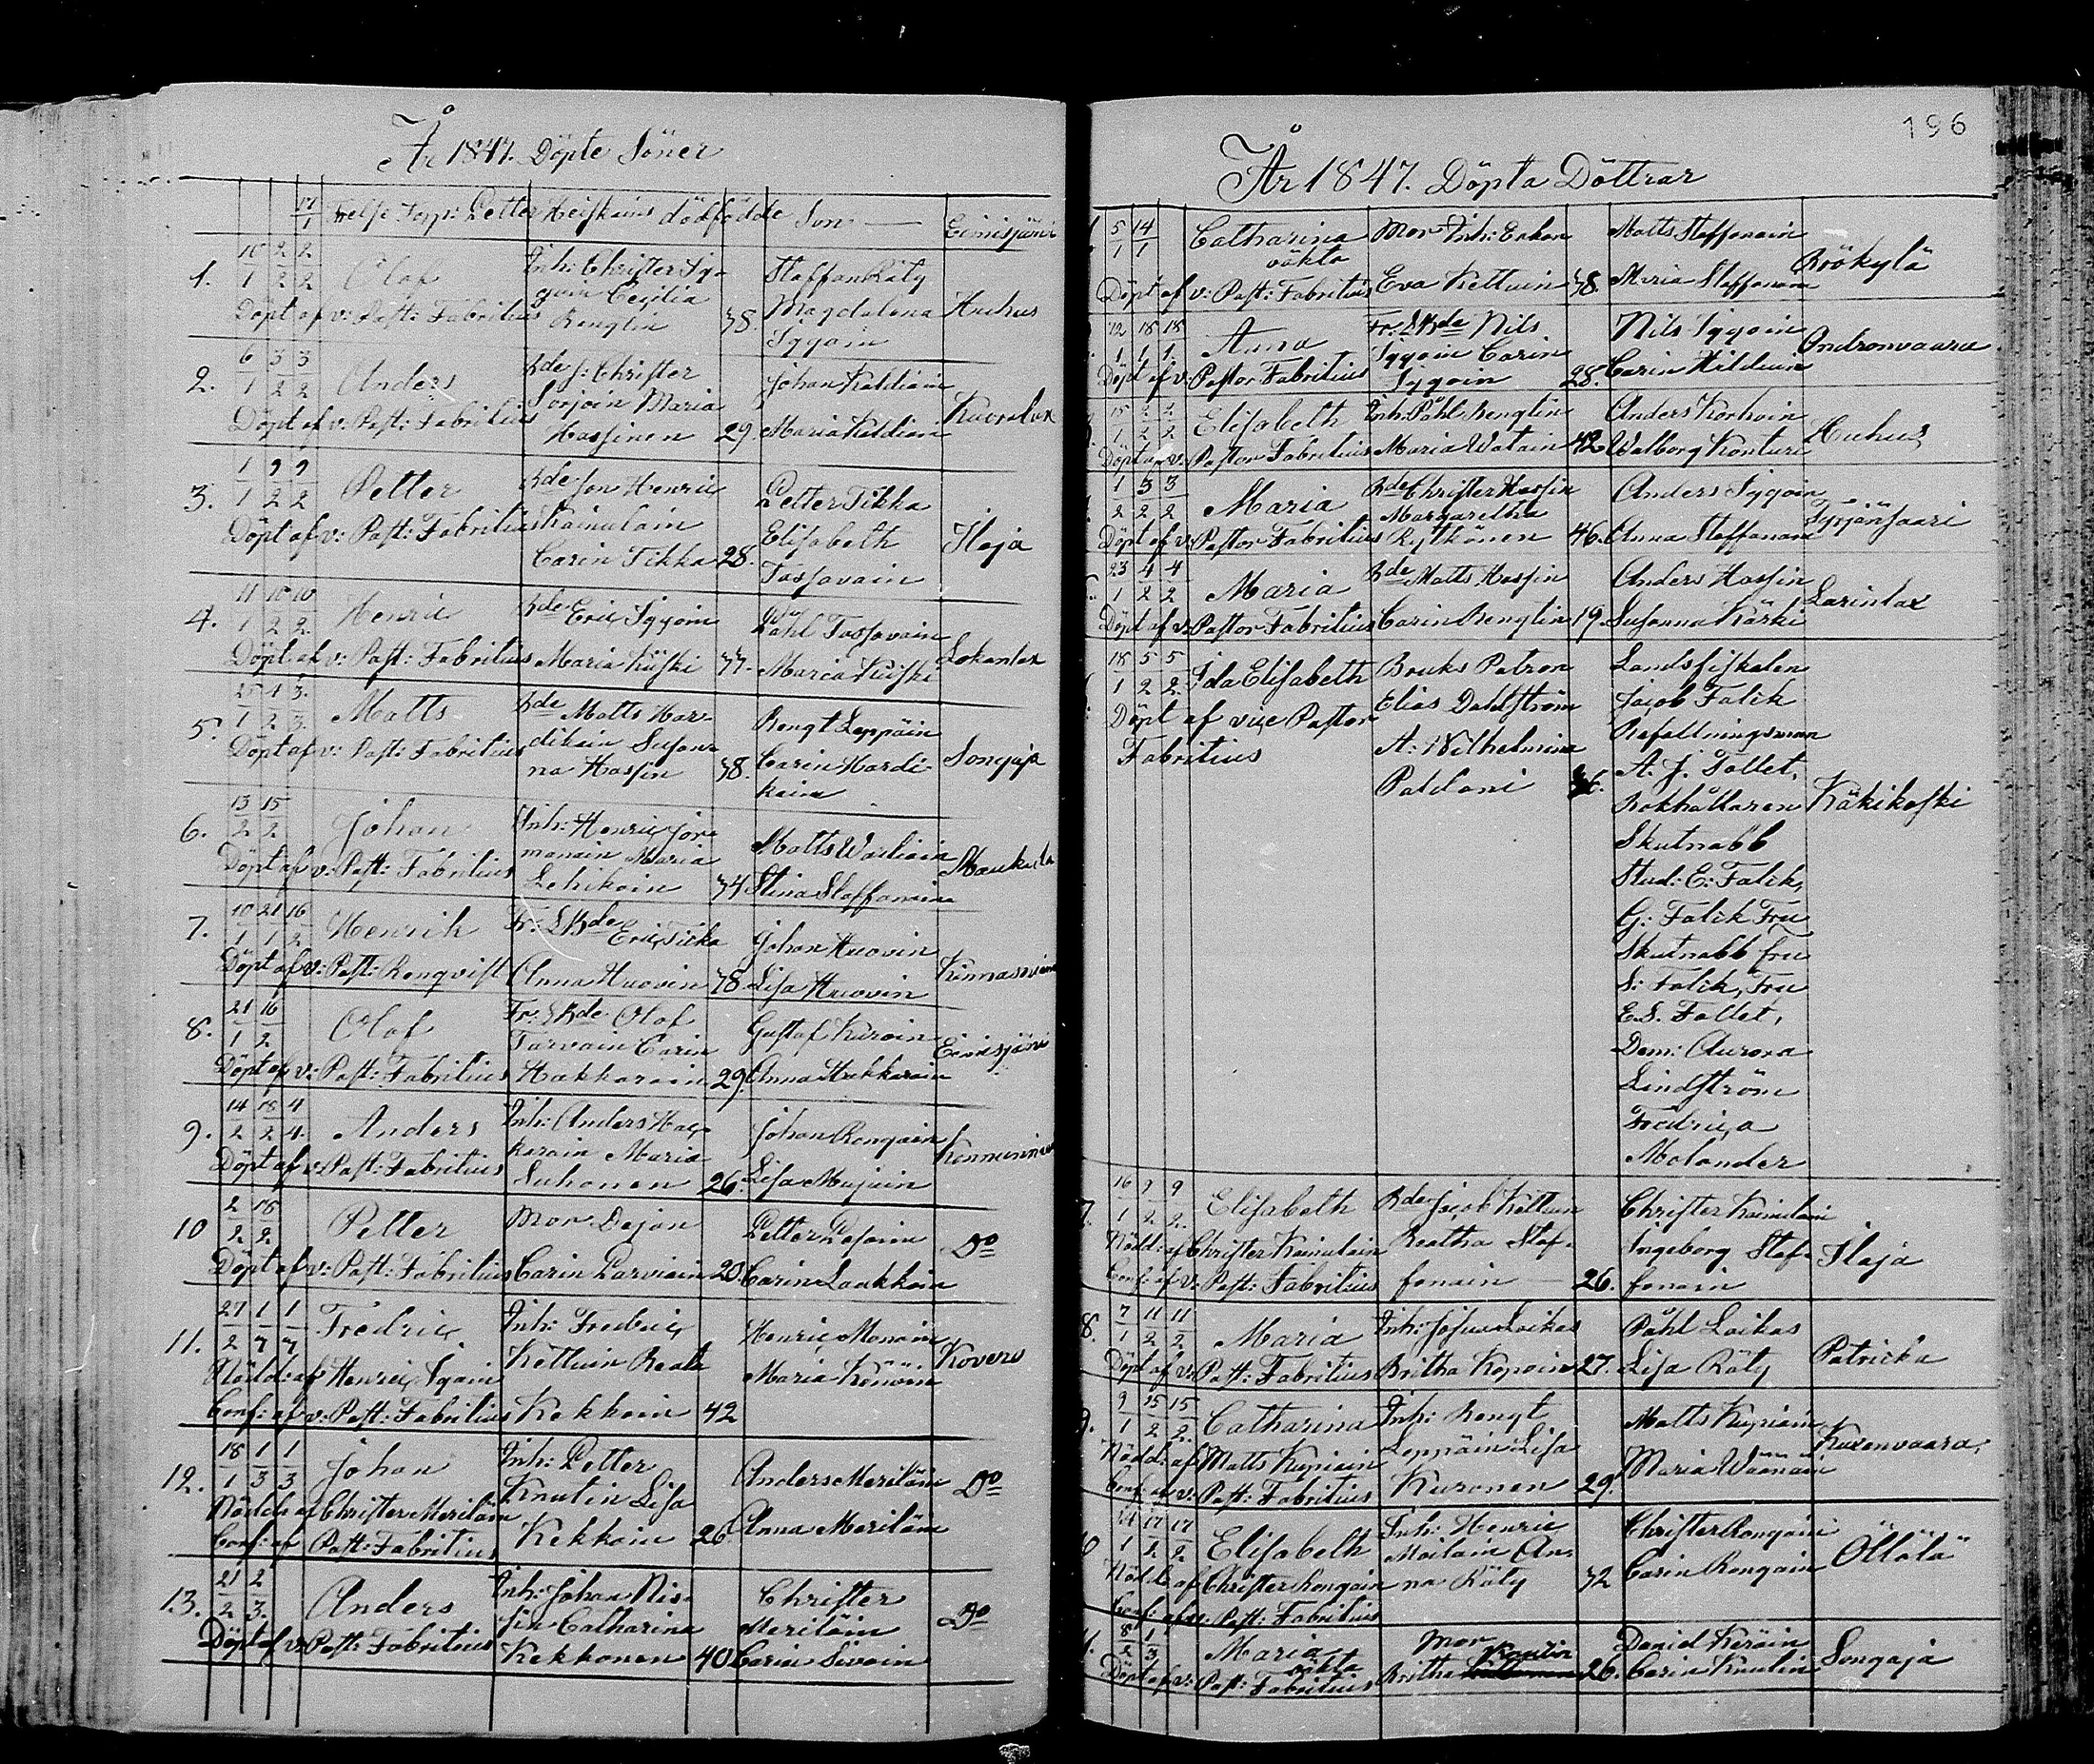 År 1847. Döpte Söner
17/1 Petter dödfödde Son —
1. 2 2
1 2 2 Olof Inh: Christer Ig-
goin Cecilia Staffan Räty
Döpt af v: Past: Fabritius Benglin 38. Magdalena Huhus
Iggoin
6 3 3
2. 1 2 2 Anders Bde s: Christer Johan Kaldiain
Sorjoin Maria Kuorelax
Döpt af v: Past: Fabritius Hassinen 29. Maria Kaldiain
1 9 9
3. 1 2 2 Petter Bde Son Henric Petter Tikka
Döpt af v: Past: Fabritius Kainulain Elisabeth Ilaja
Carin Tikka 28. Tossavain
11 10 10
4. 1 2 2. Henric Bde Eric Iggoin Påhl Tossavain
Döpt af v: Past: Fabritius Maria Kiiski 37. Maria Kiiski Lokanlax
25 1 3.
5. 1 2 3. Matts Bde Matts Har-
dikain Susan- Bengt Leppäin
Döpt af v: Past: Fabritius na Hassin 38. Carin Hardi- Sonjaja
kain
13 15
6. 2 2 Johan Inh: Henric Jor-
manain Maria Matts Wasliain
Döpt af v: Past: Fabritius Lehikoin 34 Stina Staffanain
10 21 16
7. 1 1 2 Henrik Fr: SBde Eric Ticka Johan Huovin
Döpt af v: Past: Renqvist Anna Huovin 38. Lisa Huovin
21 16
8. 1 2 Olof Fr: SBde Olof Gustaf Kuroin
Tarvain Carin Eimisjärvi
Döpt af v: Past: Fabritius Hakkarain 29. Anna Hakkarain
14 18 4
9. 2 2 4. Anders Inh: Anders Hac-
karain Maria Johan Rongain
Döpt af v: Past: Fabritius Suhonen 26. Lisa Mujuin
2 18
10 2 2. Petter Mor Dejan Petter Do
Döpt af v: Past: Fabritius Carin Parviain 20. Carin Laakkoin
27 1 1
11. 2 7 7 Fredric Inh: Fredric Henric Monoin
Nöddt af Henric Igoin Kettuin Beata Maria Könöin Kovero
Conf: af v: Past: Fabritius Kekkoin 42
18 1 1
12. 1 3 3 Johan Inh: Petter Anders Meriläin Do
Nöddt af Christer Meriläin Knutin Lisa
Conf: af Past: Fabritius Kekkoin 26. Anna Meriläin
21 2
13. 2 3. Anders Inh: Johan Nis-
sin Catharina Christer Do
Meriläin
Döpt af v: Past: Fabritius Kekkonen 40 Carin Sivoin
196
År 1847. Döpta Döttrar
5 14
1 1 Catharina Mor Inh: Enkan Matts Staffanain
oäkta Rökylä
Döpt af v: Past: Fabritius Eva Kettuin 38. Maria Staffanain
12 18 18
1 1 1. Anna Fr: SBde Nils Nils Iggoin
Iggoin Carin Ondronvaara
Döpt af v: Pastor Fabritius Iggoin 28. Carin Hilduin
15 2 2
1 2 2 Elisabeth Inh: Påhl Benglin Anders Korhoin
Döpt af v: Pastor Fabritius Maria Watain 42 Walborg Konturi Huhus
1 3 3
2 2 2 Maria Bde Christer Hassin Anders Iggoin
Margaretha
Döpt af v: Pastor Fabritius Rytkönen 46. Anna Staffanain
23 4 4
1 2 2 Maria Bde Matts Hassin Anders Hassin Larinlax
Döpt af v: Pastor Fabritius Carin Benglin 19. Susanna Kärki
18 5 5
1 2 2. Ida Elisabeth Bruks Patron Landsfiskalen
Elias Dahlström Jacob Falck
Döpt af vice Pastor Befallningsman
Fabritius A: Wilhelmina A. J. Tollet,
Paldani 36. Bokhållaren Käkikoski
Skutnabb
Stud: E: Falck,
G: Falck Fru
Skutnabb fru
S: Falck, Fru
E. S. Tollet,
Dem: Aurora
Lindström
Fredrica
Molander
16 9 9
7. 1 2 2. Elisabeth Bde Jacob Kettuin Christer Kainulain
Nödd: af Christer Kainulain Beatha Staf- Ingeborg Staf- Ilaja
Conf: af v: Past: Fabritius fanain — 26. fanain
7 11 11
8. 1 2 2. Maria Inh: Josua Laikas Påhl Laikas
Döpt af v: Past: Fabritius Britha Kopoin 27. Lisa Räty Patricka
9 15 15
9. 1 2 2. Catharina Inh: Bengt Matts Kupiain
Nödd: af Matts Kupiain Leppäin Lisa Kuxenvaara,
Conf: af v: Past: Fabritius Kuronen 29. Maria Wäänäin
21 17 17
1 2 2. Elisabeth Inh: Henric Christer Rongain
Moilain An- Öllölä
Nödd: af Christer Rongain na Räty 32 Carin Rongain
Conf: af v: Past: Fabritius
8 1
2 3 Maria Mor Knutin David Keräin
oäkta Songaja
Döpt af v: Past: Fabritius Britha 26. Carin Knutin